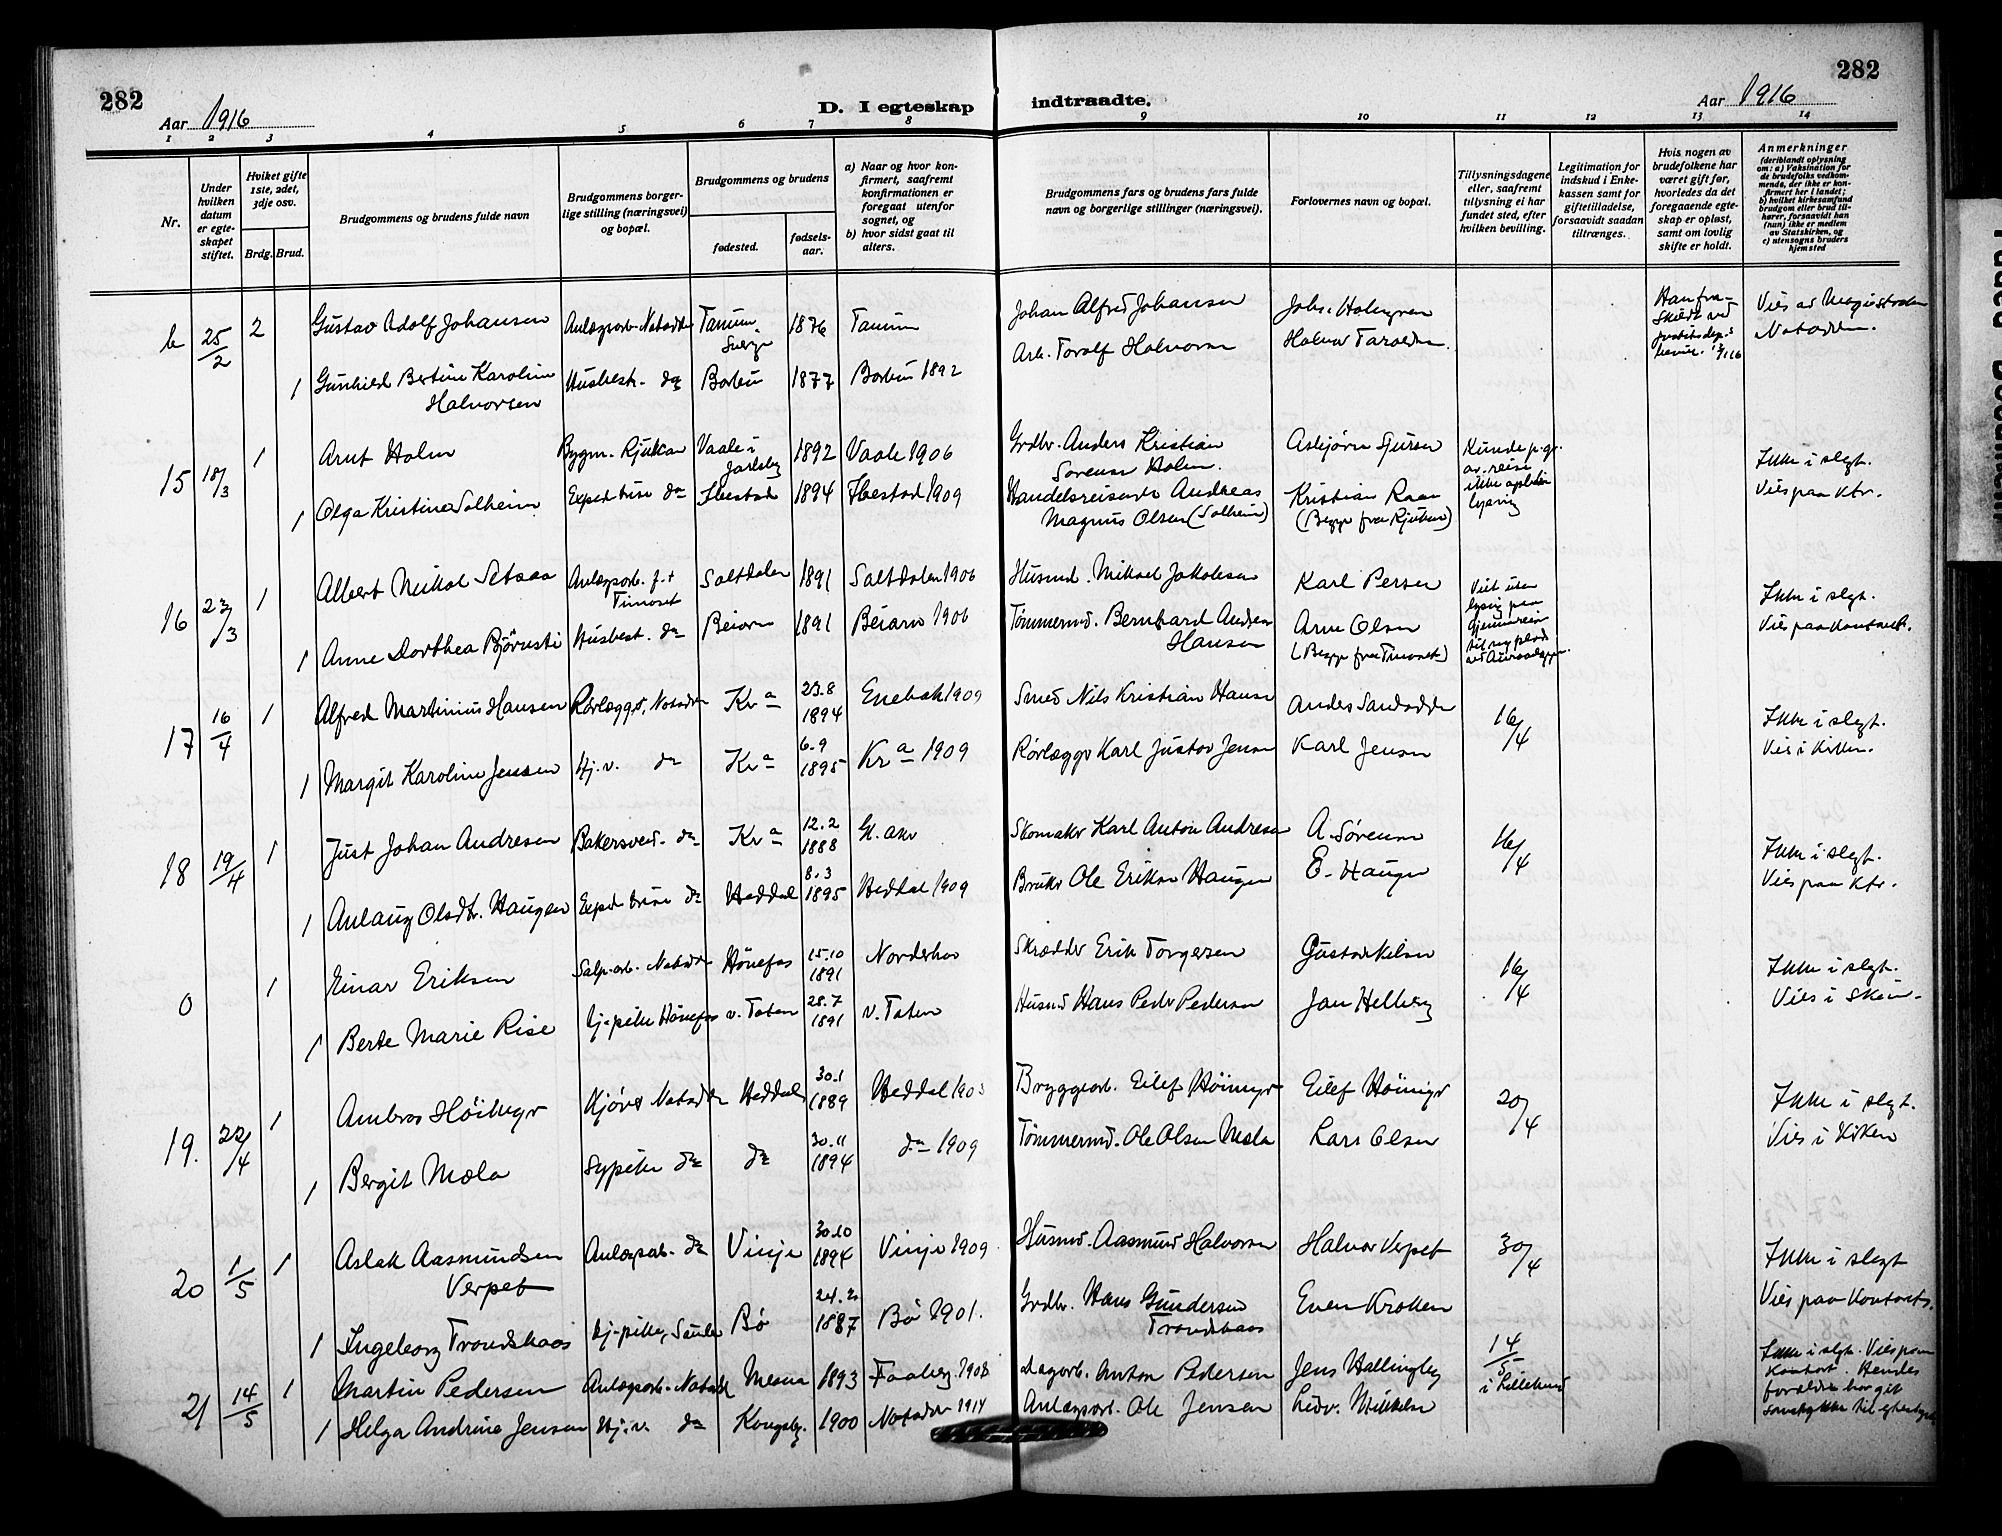 282
282
Aar 1916
D. I egteskap
indtraadte.
Aar 1916
1 2 3 4 5 6 7 8 9 10 11 12 13 14
Nr.
Under hvilken datum er egteskapet stiftet.
Hviket gifte 1ste, 2det, 3dje osv.
Brdg. Brud.
Brudgommens og brudens fulde navn
Brudgommens borgerlige stilling (næringsvei) og bopæl.
Brudgommens og brudens
fødested.
fødselsaar.
a) Naar og hvor konfirmert, saafremt konfirmationen er foregaat utenfor sognet, og
b) hvor sidst gaat til alters.
Brudgommens fars og brudens fars fulde navn og borgerlige stillinger (næringsvei).
Forlovernes navn og bopæl.
Tillysningsdagene eller, saafremt tillysning ei har fundet sted, efter hvilken bevilling.
Legitimation for indskud i Enkekassen samt for giftetilladelse, forsaavidt saadan tiltrænges.
Hvis nogen av brudefolkene har været gift før, hvorledes da det foregaaende egteskap er opløst, samt om lovlig skifte er holdt.
Anmerkninger
(deriblandt oplysning om: a) Vaksination for de brudefolks vedkommende, der ikke er konfirmert her i landet; b) hvilket kirkesamfund brudgom eller brud tilhører, forsaavidt han (hun) ikke er medlem av Statskirken, og c) utensogns bruders hjemsted
b 25/2 2 Gustav Adolf Johansen Anlægsarb. Notodden Tanum 1876 Tanum Johan Alfred Johansen Joh. Holmgren Vies av Magistraten
Sverge Notodden.
1 Gunhild Bertine Karoline Husbest. do Borbin 1877 Borbin 1892 Arb. Torolf Halvorsen Halvor Taraldsen.
Halvorsen
15 18/3 1 Arnt Holm Bygm. Rjukan Vaale i Jarlsbg 1892 Vaale 1906 Grdbr. Anders Kristian Asbjørn Sjursen Kunde p. gr. Ikke i slegt.
Sørensen Holm. av reise
1 Olga Kristine Solheim Expeditrise do Ibestad 1894 Ibestad 1909 Handelsreisende Andreas Kristian Raan ikke Vies paa ktr.
Magnus Olsen (Solheim) (Begge fra Rjukan) lysning
16 23/3 1 Albert Mikal Setsaa Anlægsarb. f.t. Saltdalen 1891 Saltdalen 1906 Husmd. Mikael Jakobsen Karl Persen Viet uten Ikke i slegt.
Timoset lysing paa
1 Anne Dorthea Bjørnsti Husbest. do Beiarn 1891 Beiarn 1906 Tømmermd. Bernhard Andreas Arne Olsen gjennemreise Vies paa kontoret.
Hansen (Begge fra Timoset)
17 16/4 1 Alfred Martinius Hansen Rørlægger, Notodden Kr a 23.8 1894 Enebak 1909 Smed Nils Kristian Hansen Anders Sandodden 16/4 Ikke i slegt.
1 Margit Karoline Jensen Hj.v. do Kr a 6.9 1895 Kr a 1909 Rørlægger Karl Justav Jensen Karl Jensen Vies i kirken.
18 19/4 1 Just Johan Andresen Bakersvend. do Kr a 12.2 1888 Gl. aker Skomaker Karl Anton Andresen A. Sørensen 16/4 Ikke i slegt.
1 Anlaug Olsdtr. Haugen Expeditrise do Heddal 8.3 1895 Heddal 1909 Bruker Ole Eriksen Haugen E. Haugen Vies paa ktr.
0 1 Einar Eriksen Salp.arb. Notodden Hønefos 15.10 1891 Norderhov Skrædder Erik Torgersen Gustav Nilsen 16/4 Ikke i slegt.
1 Berte Marie Rise Tj-pike Hønefos v. Toten 28.7 1891 v. Toten Husmd Hans Peder Pedersen Jan Helberg Vies i Skien.
19. 22/4 1 Ambros Høimyr Kjører Notodden Heddal 30.1 1889 Heddal 1903 Bryggearb. Eilef Høimyr Eilef Høimyr 20/4 Ikke i slegt.
1 Bergit Mæla Sypike do do 30.11 1894 do 1909 Tømmermd. Ole Olsen Mæla Lars Olsen Vies i Kirken
20 1/5 1 Aslak Aasmundsen Anlægsarb. do Vinje 30.10 1894 Vinje 1909. Husmd. Aasmund Halvorsen Halvor Verpet 30/4 Ikke i slegt
Verpet
1 Ingeborg Trondshaas Tj-pike, Saule Bø 24.2 1887 Bø 1901. Grdbr. Hans Gundersen Even Kroken Vies paa kontoret.
Trondshaas
21 14/5 1 Martin Pedersen Anlægsarb. Notodden Mesna 1893 Faaberg 1908 Dagarb. Anton Pedersen Jens Hallingby 14/5 Ikke i slegt. Vies paa
kontoret. Hendes
1 Helga Andrine Jensen Hj.v. do Kongsbg. 1900 Notodden 1914 Anlægsarb. Ole Jensen Ludv. Mikkelsen i Lillehm forældre har git
samtykke til egteskapet